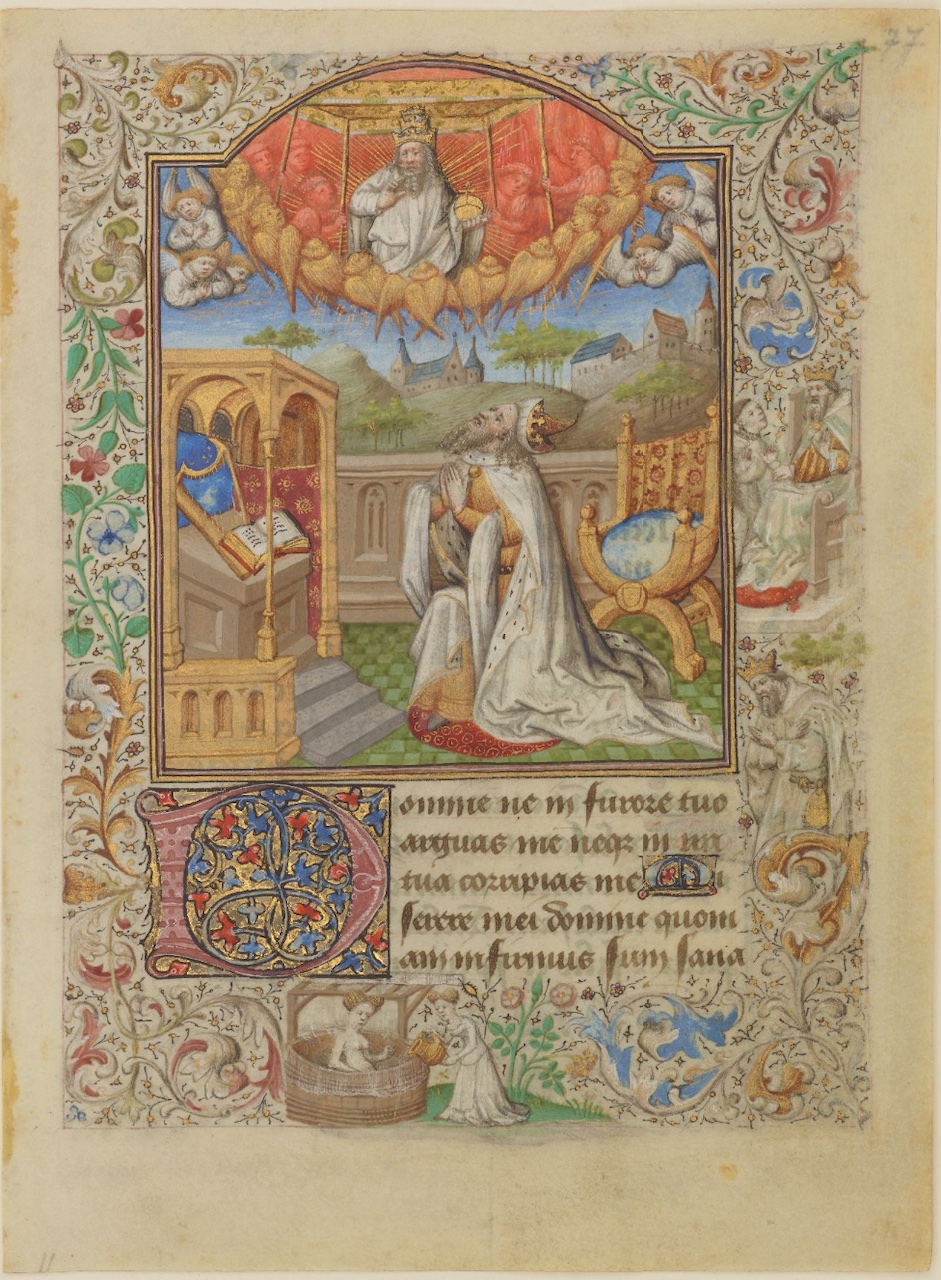 77
Domine ne in furore tuo
arguas me neqz in ira
tua corripias me Mi
serere mei domine quoni
am infirmus sum sana
11